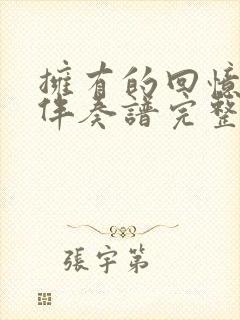 擁有的回憶
伴奏譜完整
張宇第